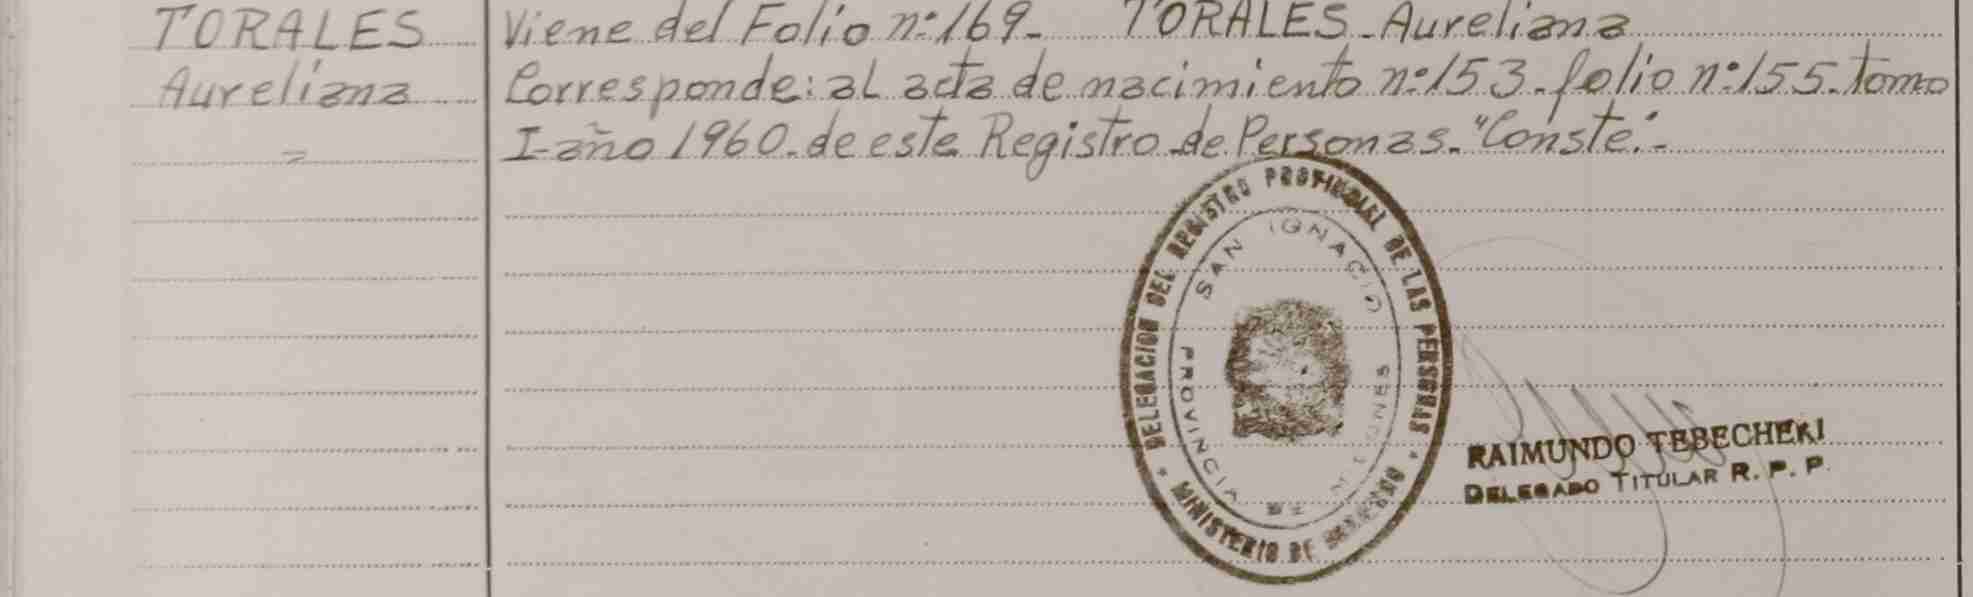 TORALES
Aureliana
=
Viene del Folio n:169- TORALES-Aureliana
Corresponde: al acta de nacimiento n:153-folio n:155-tomo
I-año 1960-de este Registro de Personas-"Conste"-
DELEGACION DEL REGISTRO PROVINCIAL DE LAS PERSONAS
* MINISTERIO DE GOBIERNO *
SAN IGNACIO
PROVINCIA DE MISIONES
RAIMUNDO TEBECHERI
DELEGADO TITULAR R. P. P.